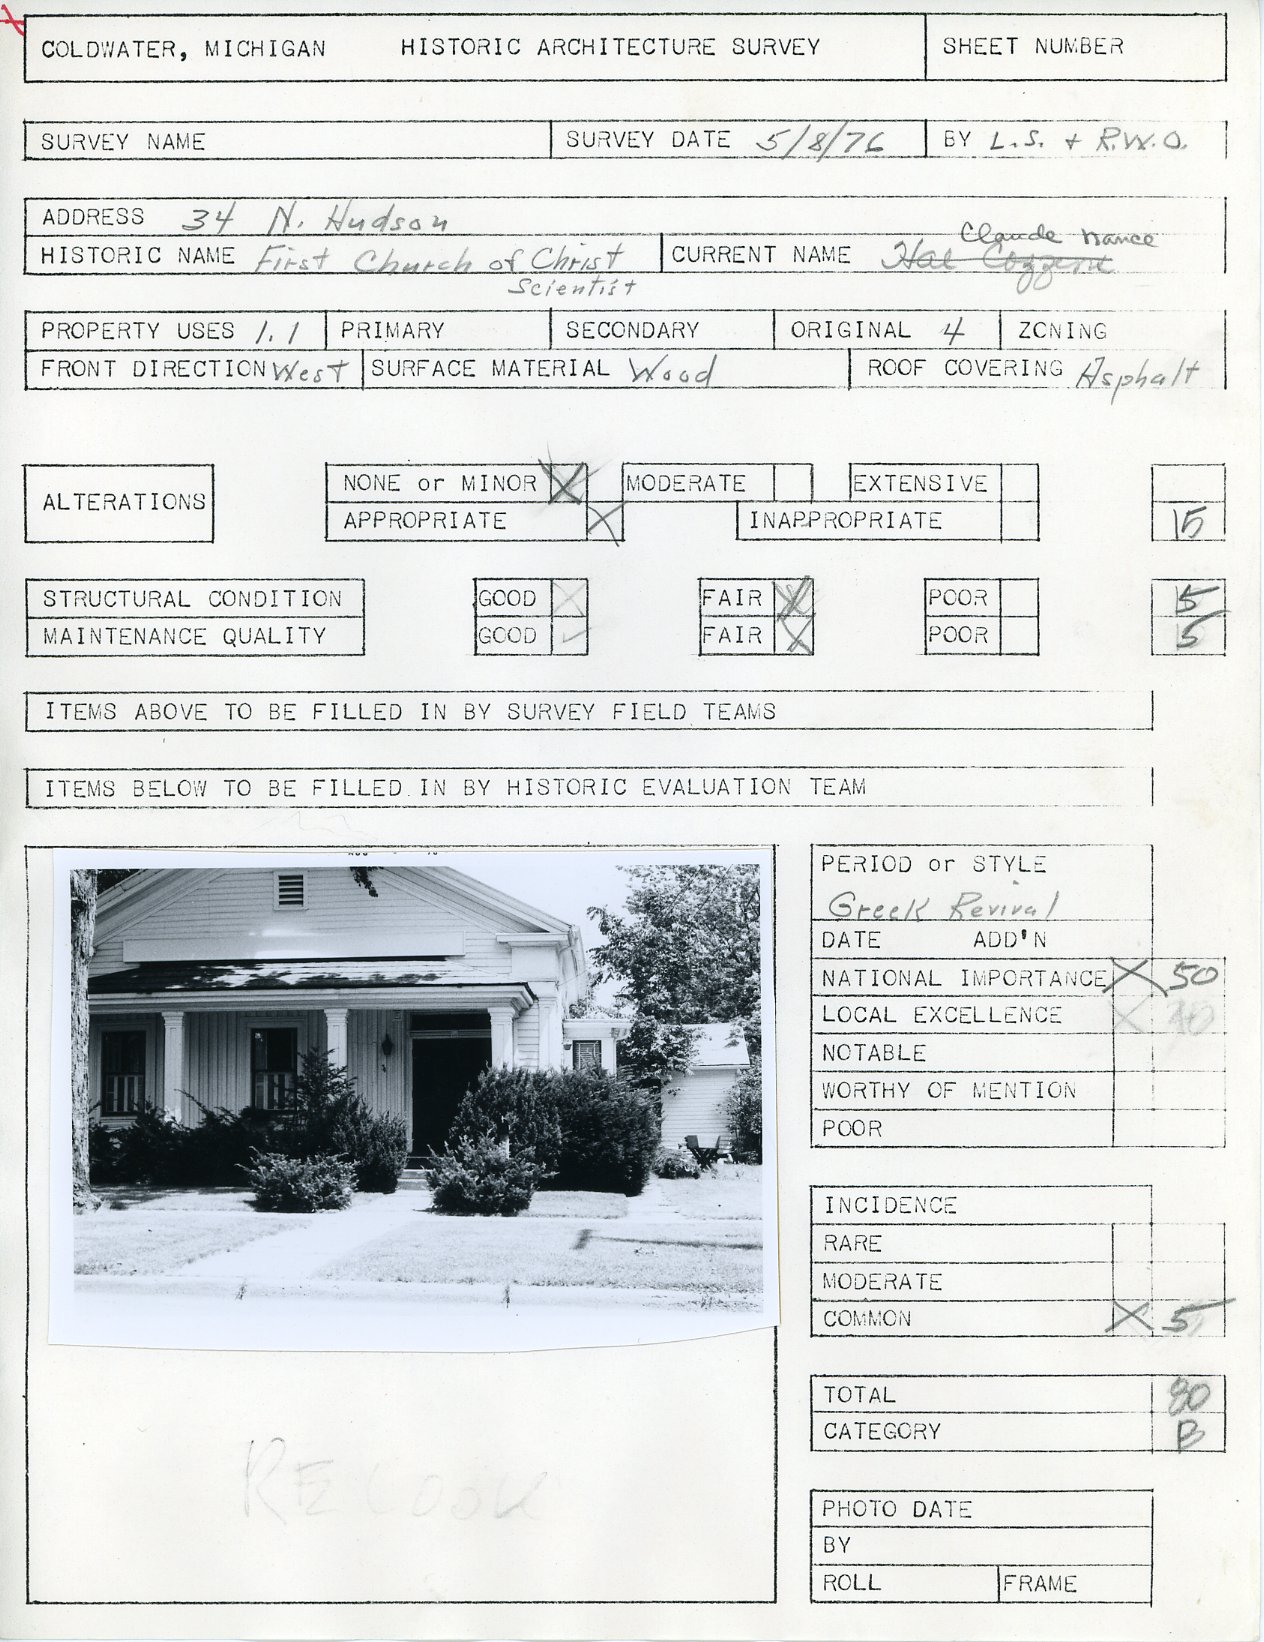 COLDWATER, MICHIGAN HISTORIC ARCHITECTURE SURVEY SHEET NUMBER
SURVEY NAME SURVEY DATE 5/8/76 BY L.S. + R.W.O.
ADDRESS 34 N. Hudson
HISTORIC NAME First Church of Christ Scientist CURRENT NAME Hal Cozzens Claude Nance
PROPERTY USES 1.1 PRIMARY SECONDARY ORIGINAL 4 ZONING
FRONT DIRECTION West SURFACE MATERIAL Wood ROOF COVERING Asphalt
ALTERATIONS
NONE or MINOR X MODERATE EXTENSIVE
APPROPRIATE X INAPPROPRIATE 15
STRUCTURAL CONDITION GOOD X FAIR X POOR 5
MAINTENANCE QUALITY GOOD ✓ FAIR X POOR 5
ITEMS ABOVE TO BE FILLED IN BY SURVEY FIELD TEAMS
ITEMS BELOW TO BE FILLED IN BY HISTORIC EVALUATION TEAM
PERIOD or STYLE
Greek Revival
DATE ADD'N
NATIONAL IMPORTANCE X 50
LOCAL EXCELLENCE X 40
NOTABLE
WORTHY OF MENTION
POOR
INCIDENCE
RARE
MODERATE
COMMON X 5
TOTAL 80
CATEGORY B
RELOOK
PHOTO DATE
BY
ROLL FRAME